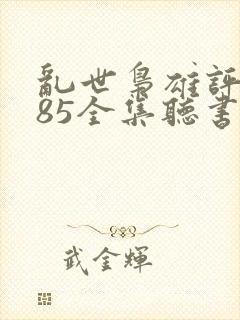 亂世梟雄評
85全集聽書
武金輝